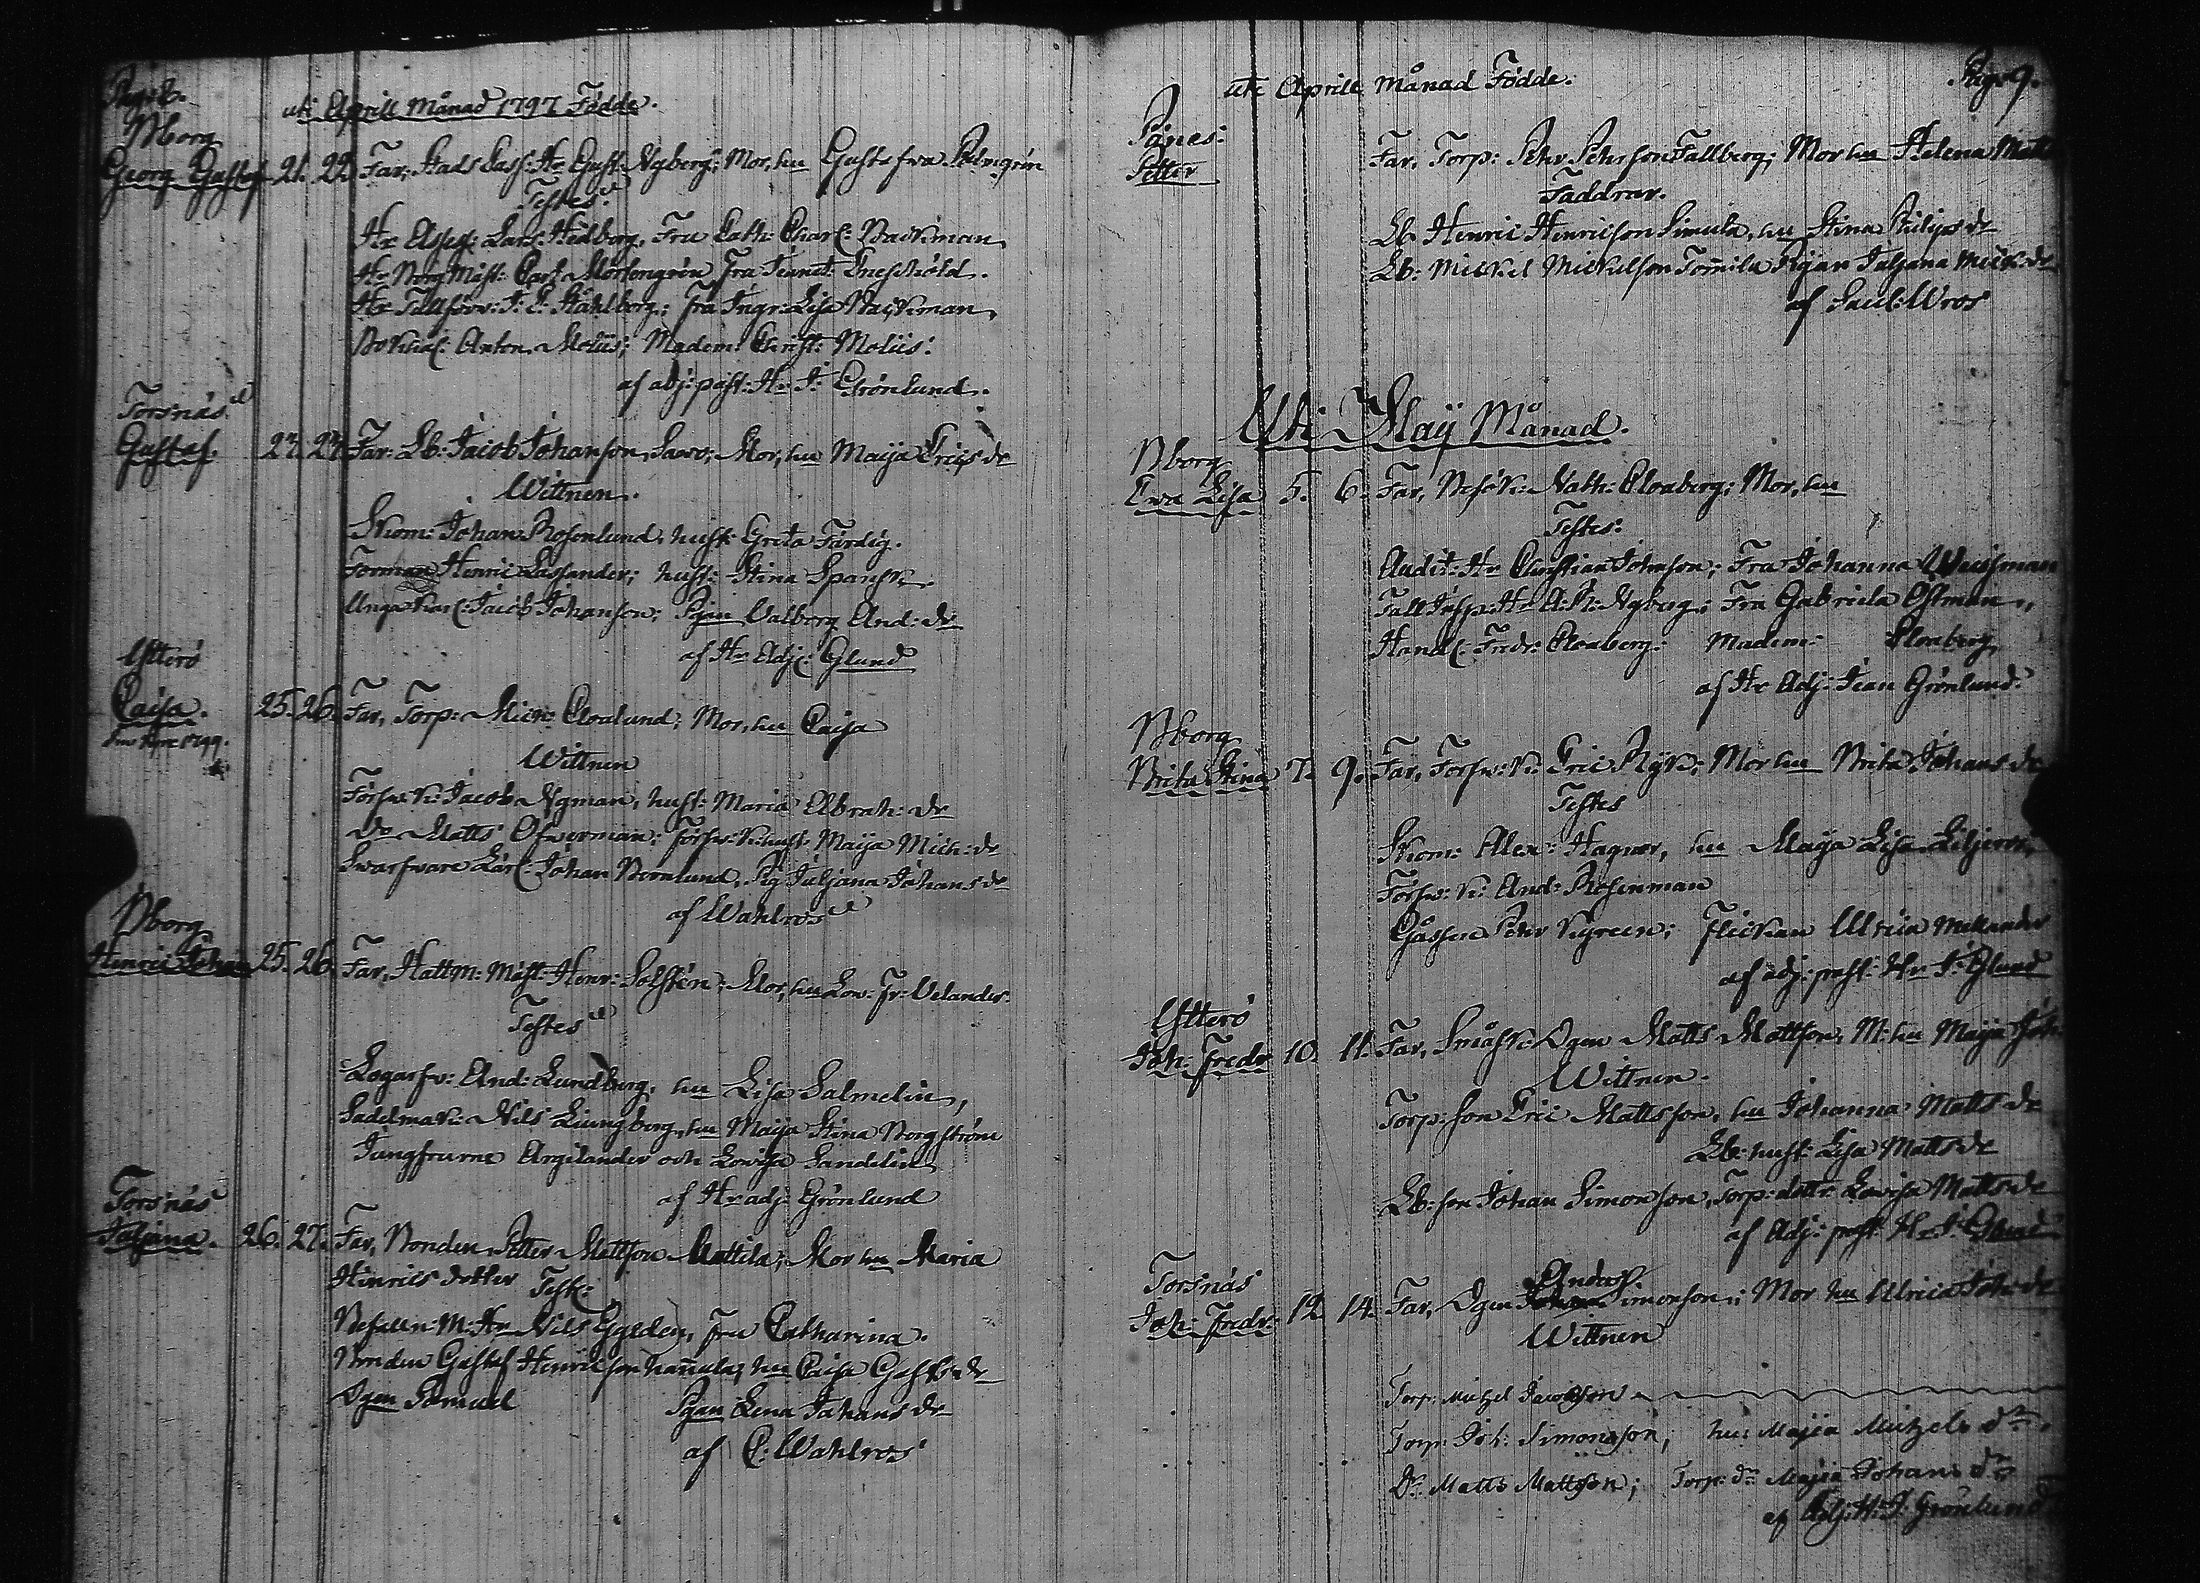 Pag: 8.
uti Aprill Månad 1797 Födde.
Bborg
Georg Gustaf 21. 22. Far, Stads Cass: Hr Gust: Nyberg; Mor, hu Gustafwa Palmgrén
Testes:
Hr Assess: Lars Hedborg, Fru Cath: Charl: Backman
Hr Borg Mäst: Carl Mårtengrén Fru Jeanet: Ehresköld.
Hr Tullförv: J: E: Ståhlberg; Fru Ingr: Lisa Backman,
Bokhål: Anton Moliis; Madem: Christ: Moliis:
af adj: past: Hr J: Grönlund.
Torsnäs
Gustaf. 23. 23. Far: Lb: Jacob Johanson Sawo; Mor, hu Maija Erics dr
Wittnen.
Skom: Johan Rosenlund, hust: Greta Färdig.
Forman Henric Cassander; hust: Stina Spansk.
Unga Karl: Jacob Johanson; Pigan Valborg And: dr
af Hr Adj: Glund
Ytterö
Caisa. 25. 26. Far, Torp: Mick: Clonlund; Mor, hu Caisa
1799.
Wittnen
Förfw: k: Jacob Nyman, hust: Maria Abrah: dr
Do Matts Öfwerman; förfw: k: hust: Maija Mich: dr
Swarfware Lärl: Johan Bernlund, Pig Juljana Johans dr
af Wahlros
Bborg
Henric Johan 25. 26. Far, Hattm: Mäst: Henr: Solstén; Mor, hu Low: Fr: Velander.
Testes
Logarfv: And: Lundberg, hu Lisa Salmelin,
Sadelmak: Nils Liungberg, hu Maija Stina Borgström
Jungfrurne Argilander och Lowisa Sandelin
af Hr adj: Grönlund
Torsnäs
Juljana. 26. 27. Far, Bonden Petter Mattson Mattila; Mor hu Maria
Hinrics dotter Test:
Befalln: M: Hr Nils Gylden, fru Catharina.
Bonden Gustaf Henricson Hannula, hu Caisa Gustafs dr
Dgen Samuel Pigan Lena Johans dr
af C: Wahlros
uti Aprill Månad Födde. Pag: 9.
Pänes:
Petter Far, Torp: Pehr Pehrson Tallberg; Mor hu Helena Matts
Faddrar.
Lb Henric Henricson Simula, hu Stina Philips dr
Lb: Mickel Mickelson Tommila Pigan Juljana Mick: dr
af Sacel: Wros
Uti Maij Månad.
Bborg
Ewa Lisa 5. 6. Far, Besök: Nath: Cloaberg; Mor, hu
Testes:
Audit: Hr Christian Johnson; Fru Johanna Weisman
Tull Insp: Hr A: R: Nyberg; Fru Gabriela Östman,
Handl: Fredr: Cloaberg: Madem: Cloaberg,
af Hr Adj: Jean Grönlund:
Bborg
Brita Stina 7. 9. Far, Förfw: k: Eric Ryk; Mor hu Brita Johans dr
Testes
Skom: Alex: Hagner, hu Maija Lisa Liljeros,
Förfw: k: And: Rosenman
Gåssen Pehr Kgreen; Flickan Ulrica Mellander
af adj: past: Hr J: Glund
Ytterö
Joh: Fredr 10. 11. Far, Småsk: Dgen Matts Mattson, M: hu Maija Joh:
Wittnen.
Torp: son Eric Mattsson, hu Johanna Matts dr
Lb: hust: Lisa Matts dr
Lb: son Johan Simonson, Torp: dottr: Lowisa Matts dr
af Adj: past: Hr J: Glund
Torsnäs
Joh: Fredr: 12. 14. Far, Dgen Anders Simonson; Mor hu Ulrica Joh: dr
Wittnen
Torp: Michel Jacobson
Torp: Joh: Simonsson, hu: Majea Mitzels dr.
Dr. Matts Mattsson; Torp: dr Majea Johans dr
af Adj: H: J: Grönlund